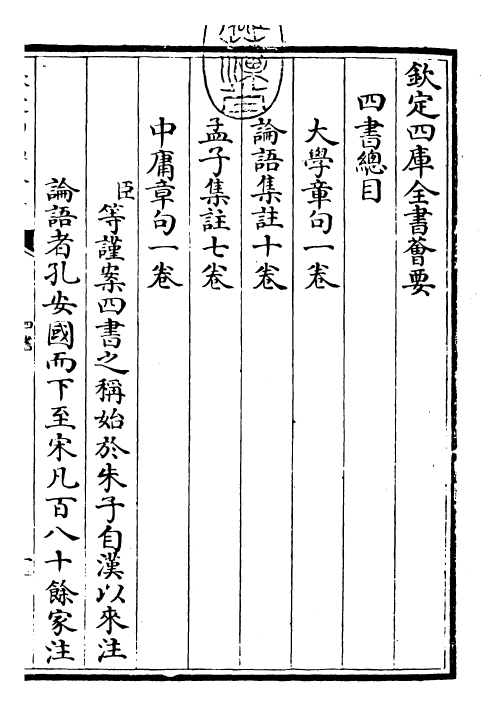 欽定四庫全書薈要
四書總目
大學章句一卷
論語集註十卷
孟子集註七卷
中庸章句一卷
臣等謹案四書之稱始於朱子自漢以來注
論語者孔安國而下至宋凡百八十餘家注